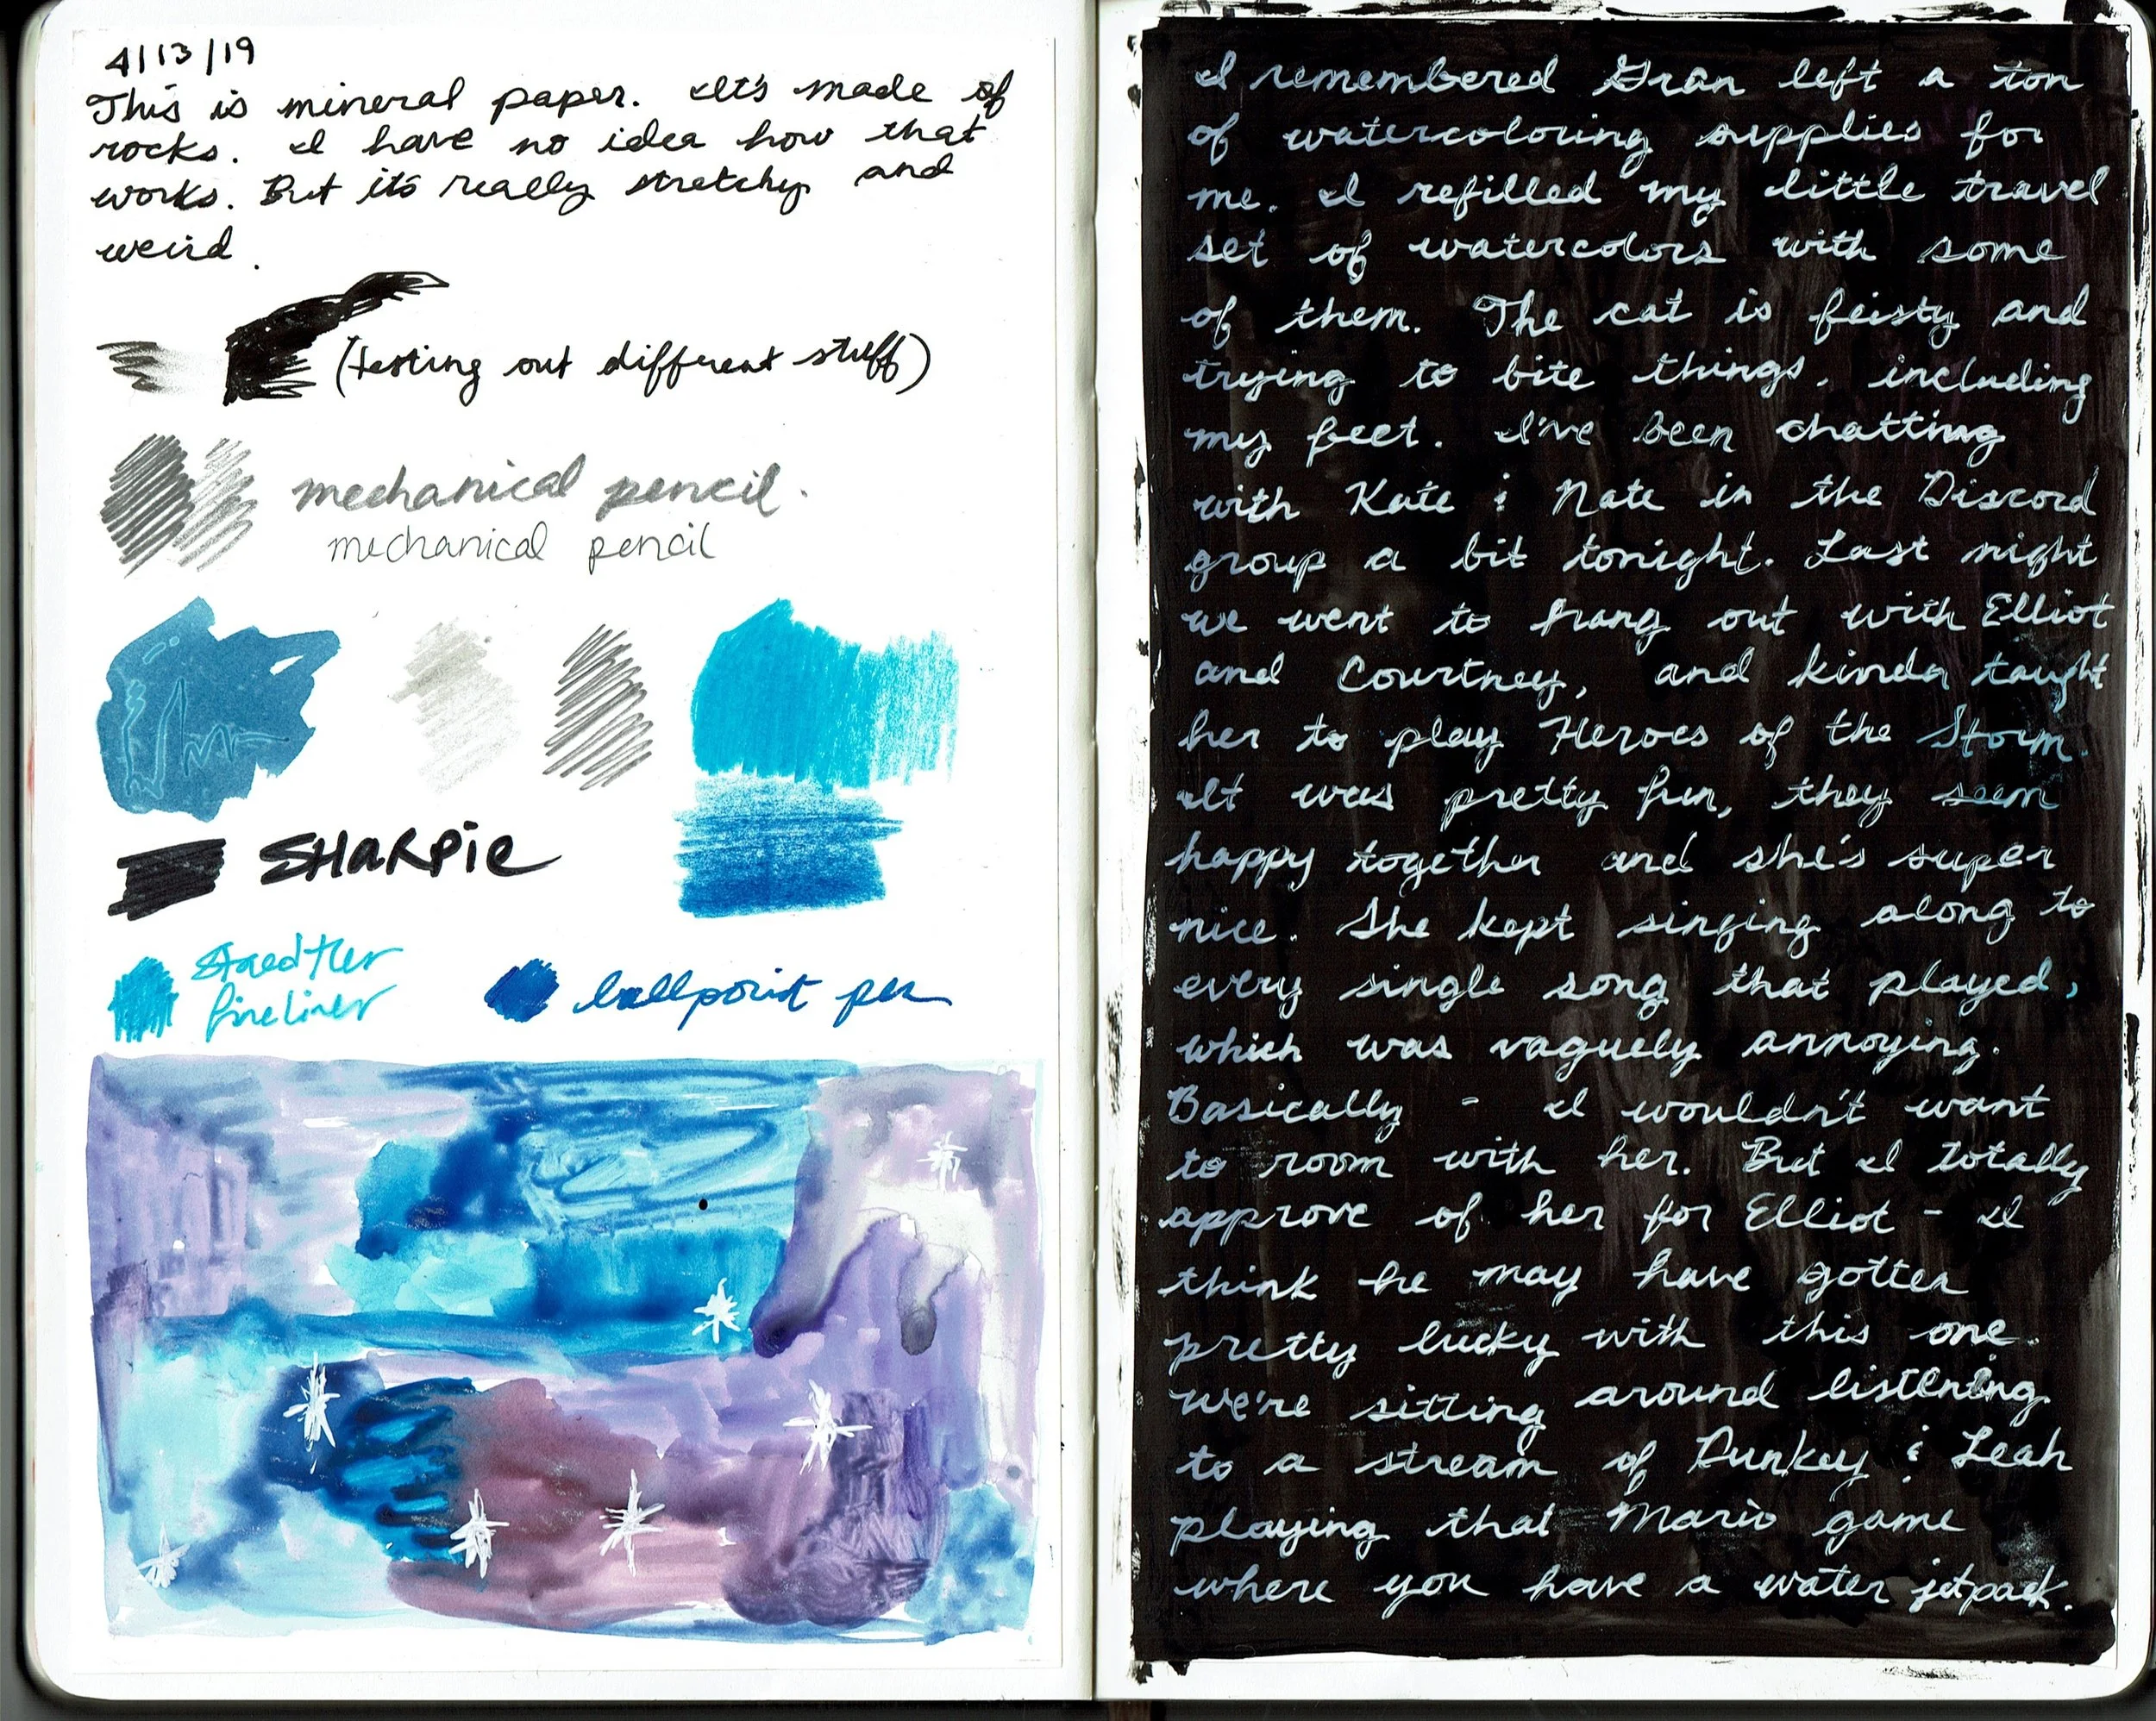 4/13/19
This is mineral paper. It's made of
rocks. I have no idea how that
works. But it's really stretchy and
weird.
(testing out different stuff)
mechanical pencil.
mechanical pencil
SHARPie
Staedtler
fineliner
ballpoint pen
I remembered Gran left a ton
of watercoloring supplies for
me. I refilled my little travel
set of watercolors with some
of them. The cat is feisty and
trying to bite things, including
my feet. I've been chatting
with Kate & Nate in the Discord
group a bit tonight. Last night
we went to hang out with Elliot
and Courtney, and kinda taught
her to play Heroes of the Storm.
It was pretty fun, they seem
happy together and she's super
nice. She kept singing along to
every single song that played,
which was vaguely annoying.
Basically - I wouldn't want
to room with her. But I totally
approve of her for Elliot - I
think he may have gotten
pretty lucky with this one.
We're sitting around listening
to a stream of Dunkey & Leah
playing that Mario game
where you have a water jetpack.